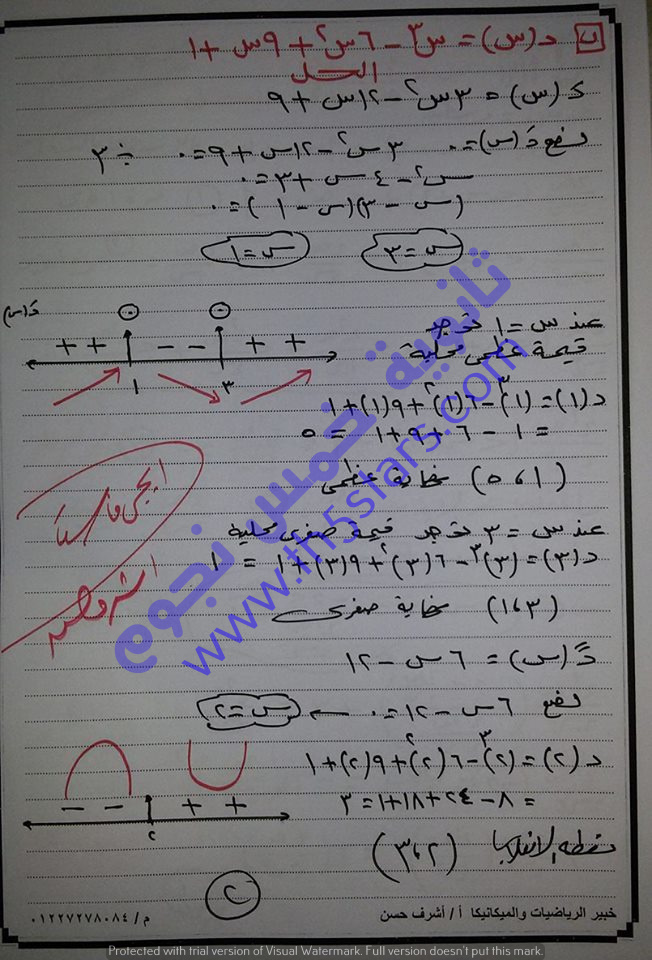 ب د(س) = س٣ - ٦س٢ + ٩س + ١
الحل
دَ(س) = ٣س٢ - ١٢س + ٩
نضع دَ(س) = ٠ ٣س٢ - ١٢س + ٩ = ٠ ÷ ٣
س٢ - ٤س + ٣ = ٠
(س - ٣)(س - ١) = ٠
س = ٣ س = ١
دَ(س)
+ + - - + +
١ ٣
عند س = ١ توجد
قيمة عظمى محلية
د(١) = (١)٣ - ٦(١)٢ + ٩(١) + ١
= ١ - ٦ + ٩ + ١ = ٥
(١ ، ٥) نهاية عظمى
عند س = ٣ توجد قيمة صغرى محلية
د(٣) = (٣)٣ - ٦(٣)٢ + ٩(٣) + ١ = ١
(٣ ، ١) نهاية صغرى
دً(س) = ٦س - ١٢
نضع ٦س - ١٢ = ٠ ← س = ٢
د(٢) = (٢)٣ - ٦(٢)٢ + ٩(٢) + ١
= ٨ - ٢٤ + ١٨ + ١ = ٣
- - + +
٢
نقطة الانقلاب (٢ ، ٣)
٢
خبير الرياضيات والميكانيكا أ / أشرف حسن م / ٠١٢٢٧٢٧٨٠٨٤
ثانوية خمس نجوم
www.th5stars.com
Protected with trial version of Visual Watermark. Full version doesn't put this mark.